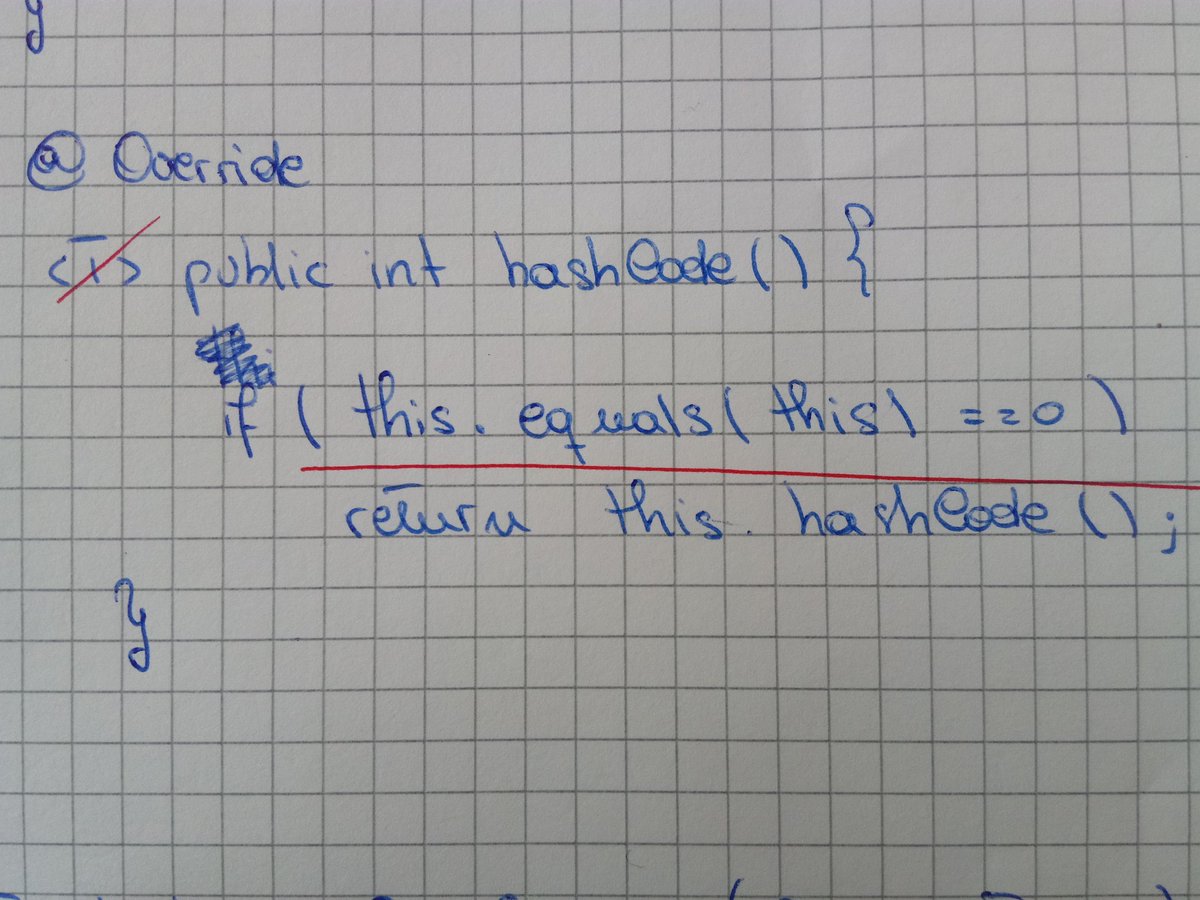 }
@ Override
<T> public int hashCode() {
if ( this. equals( this) == 0 )
return this. hashCode();
}